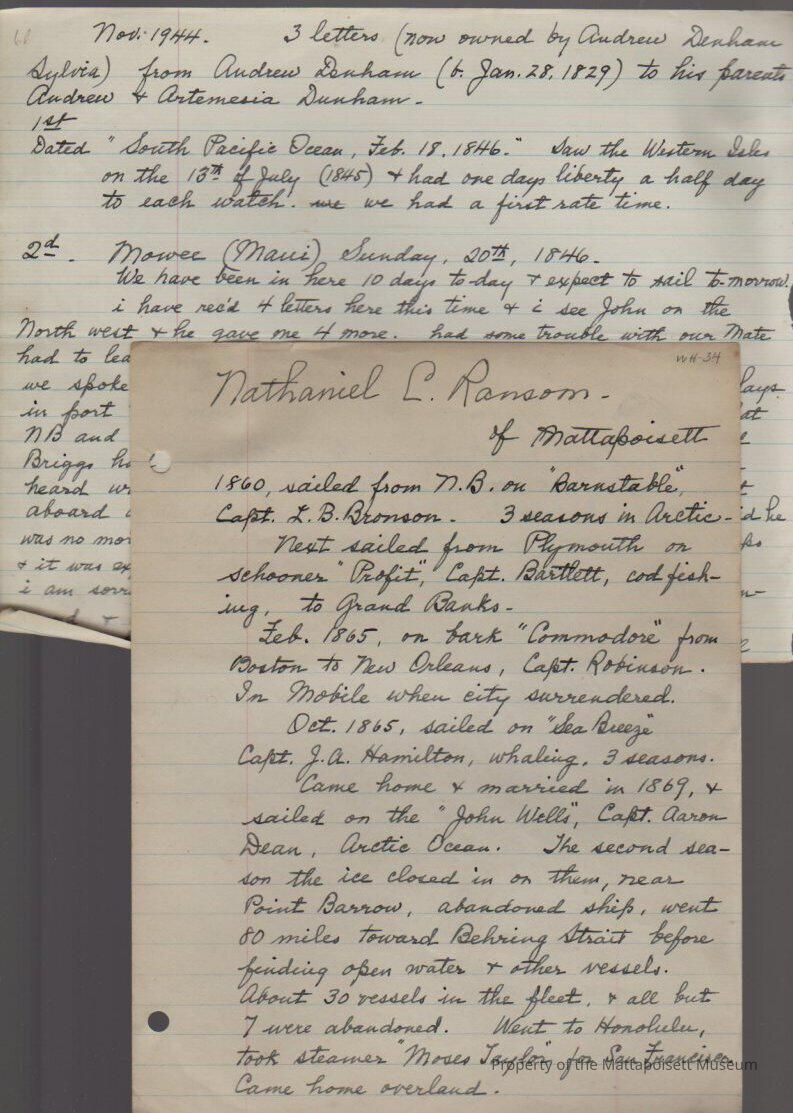 Nov. 1944. 3 letters (now owned by Andrew Denham
Sylvia) from Andrew Dunham (b. Jan. 28, 1829) to his parents
Andrew & Artemesia Dunham -
1st
Dated "South Pacific Ocean, Feb. 18, 1846." Saw the Western Isles
on the 13th of July (1845) & had one days liberty a half day
to each watch. we we had a first rate time.
2d. Mowee (Maui) Sunday, 20th, 1846.
We have been in here 10 days to-day & expect to sail to-morrow.
i have rec'd 4 letters here this time & i see John on the
North west & he gave me 4 more. had some trouble with our Mate
had to lea
we spoke
in port
NB and
Briggs ha
heard wr
aboard
was no mo
& it was ex
i am sorr
WH-34
Nathaniel C. Ransom -
of Mattapoisett
1860, sailed from N.B. on "Barnstable",
Capt. L. B. Bronson - 3 seasons in Arctic -
Next sailed from Plymouth on
schooner "Profit", Capt. Bartlett, cod fish-
ing, to Grand Banks -
Feb. 1865, on bark "Commodore" from
Boston to New Orleans, Capt. Robinson.
In Mobile when city surrendered.
Oct. 1865, sailed on "Sea Breeze"
Capt. J.A. Hamilton, whaling, 3 seasons.
Came home & married in 1869, &
sailed on the "John Wells", Capt. Aaron
Dean, Arctic Ocean. The second sea-
son the ice closed in on them, near
Point Barrow, abandoned ship, went
80 miles toward Behring Strait before
finding open water & other vessels.
About 30 vessels in the fleet, & all but
7 were abandoned. Went to Honolulu,
took steamer "Moses Taylor" for San Francisco.
Came home overland.
Property of the Mattapoisett Museum